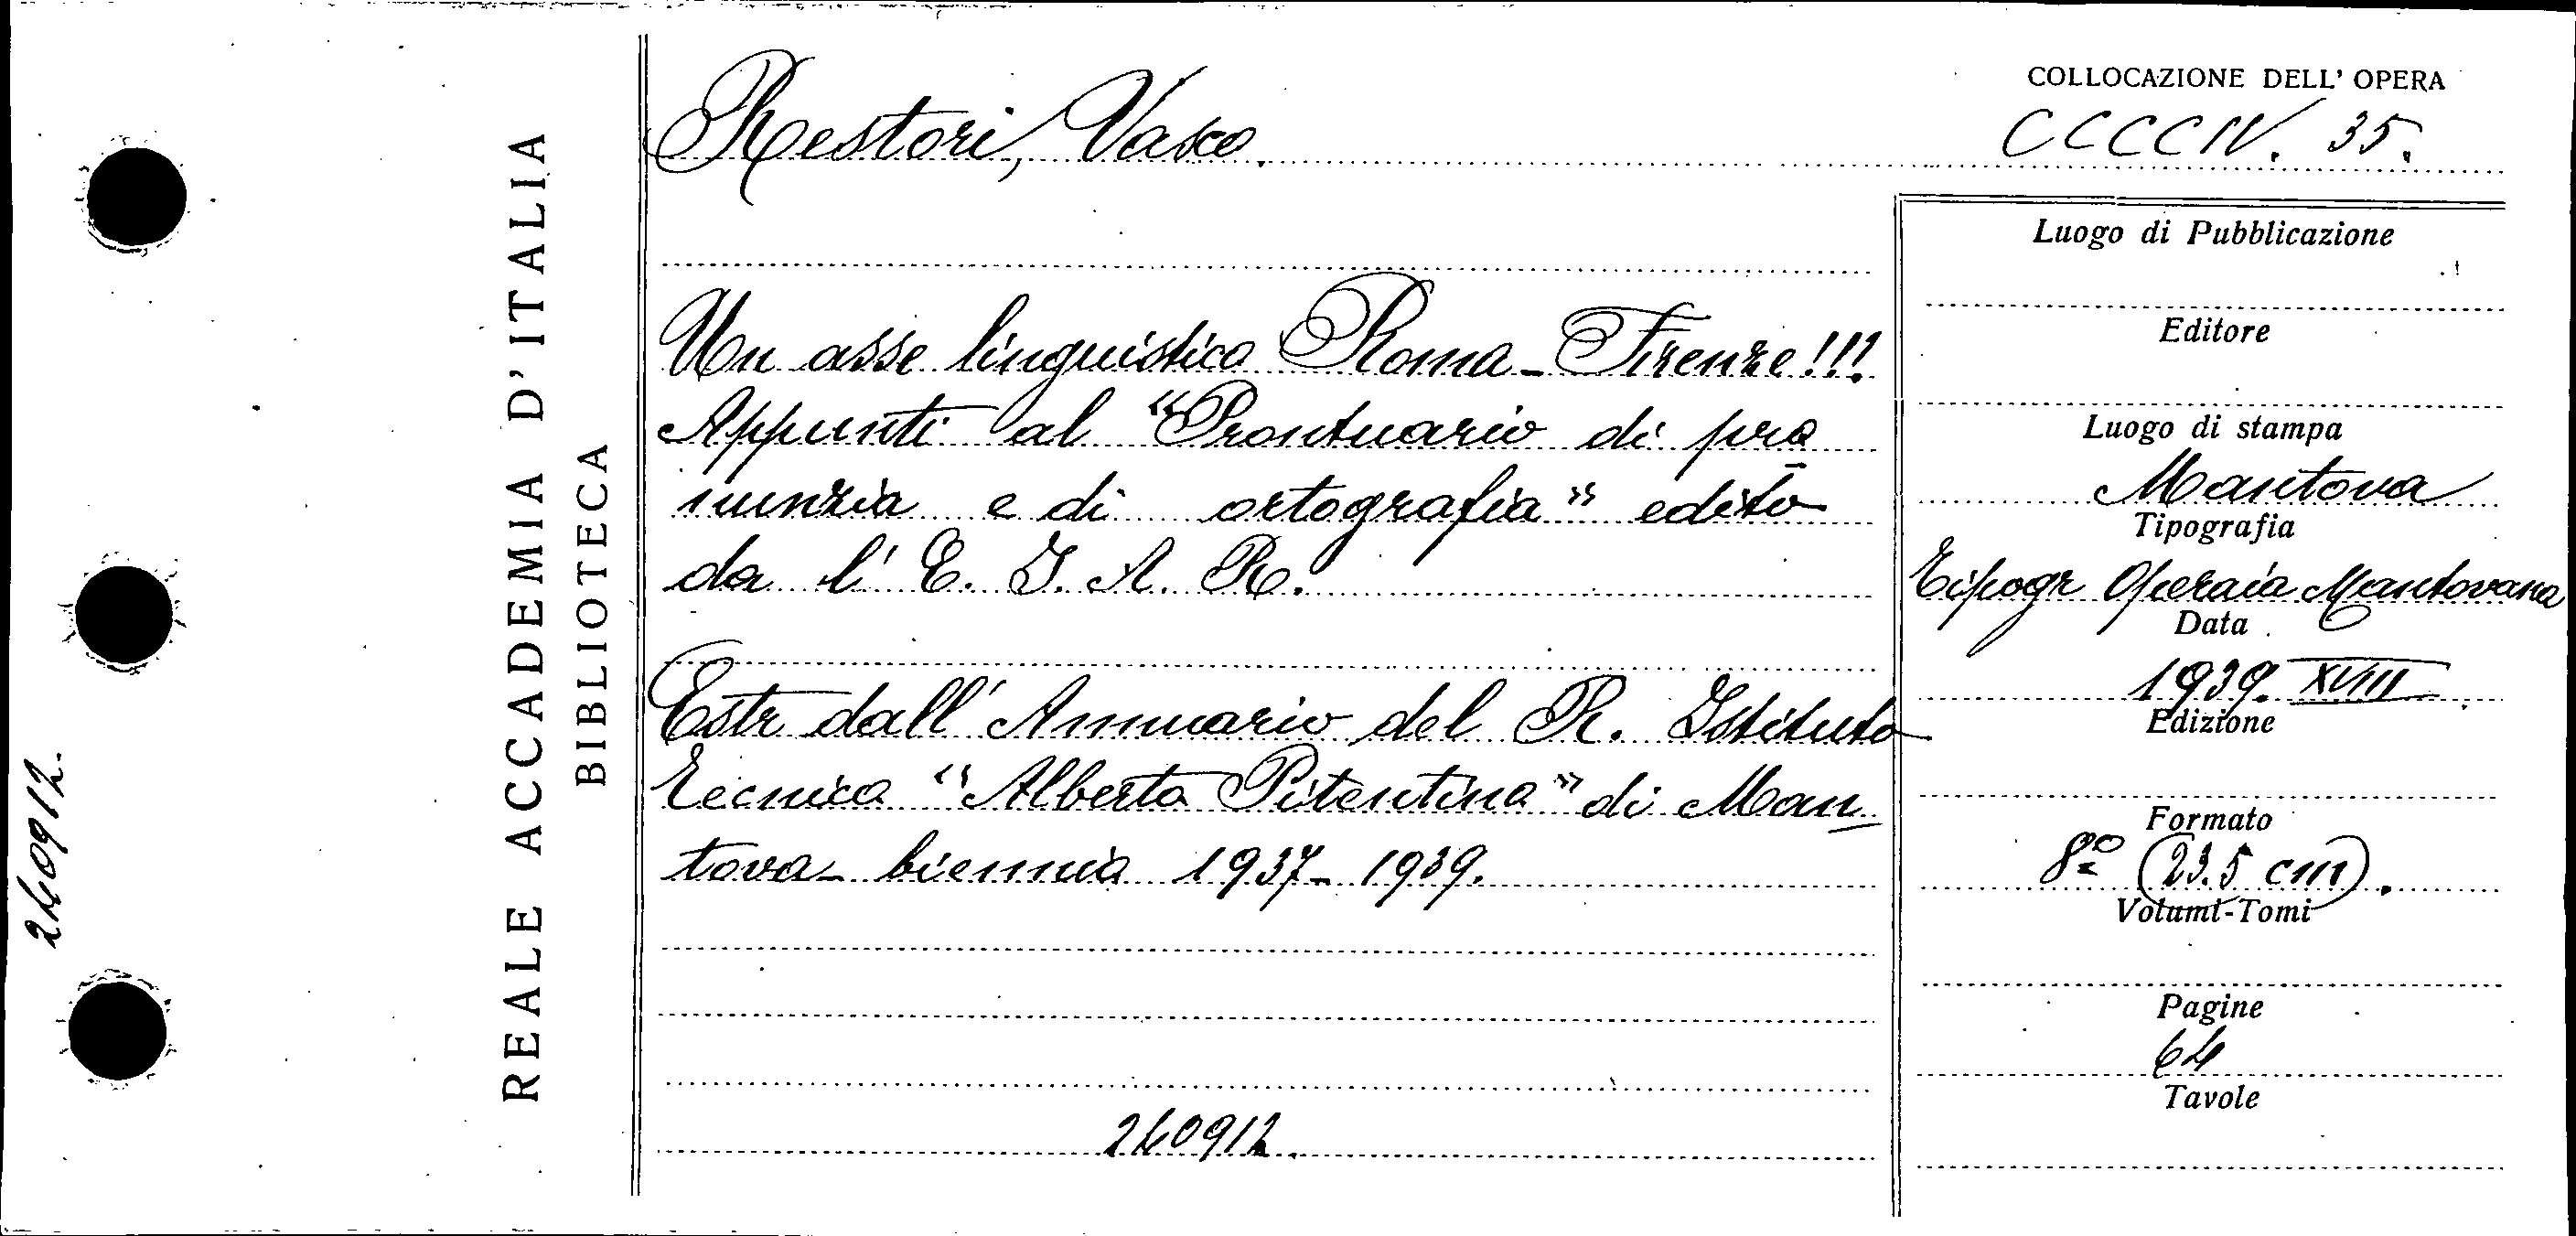 REALE ACCADEMIA D'ITALIA
BIBLIOTECA
240912.
Restori, Vasco.
Un asse linguistico Roma-Firenze!!!
Appunti al "Prontuario di pro
nunzia e di ortografia" edito
da l' E. I. A. R.
Estr dall' Annuario del R. Istituto
Tecnico "Alberto Pitentino" di Man
tova - biennio 1937-1939.
240912.
COLLOCAZIONE DELL' OPERA
CCCCIV. 35.
Luogo di Pubblicazione
Editore
Luogo di stampa
Mantova
Tipografia
Tipogr Operaia Mantovana
Data
1939. XVIII
Edizione
Formato
8º (23.5 cm).
Volumi-Tomi
Pagine
64
Tavole